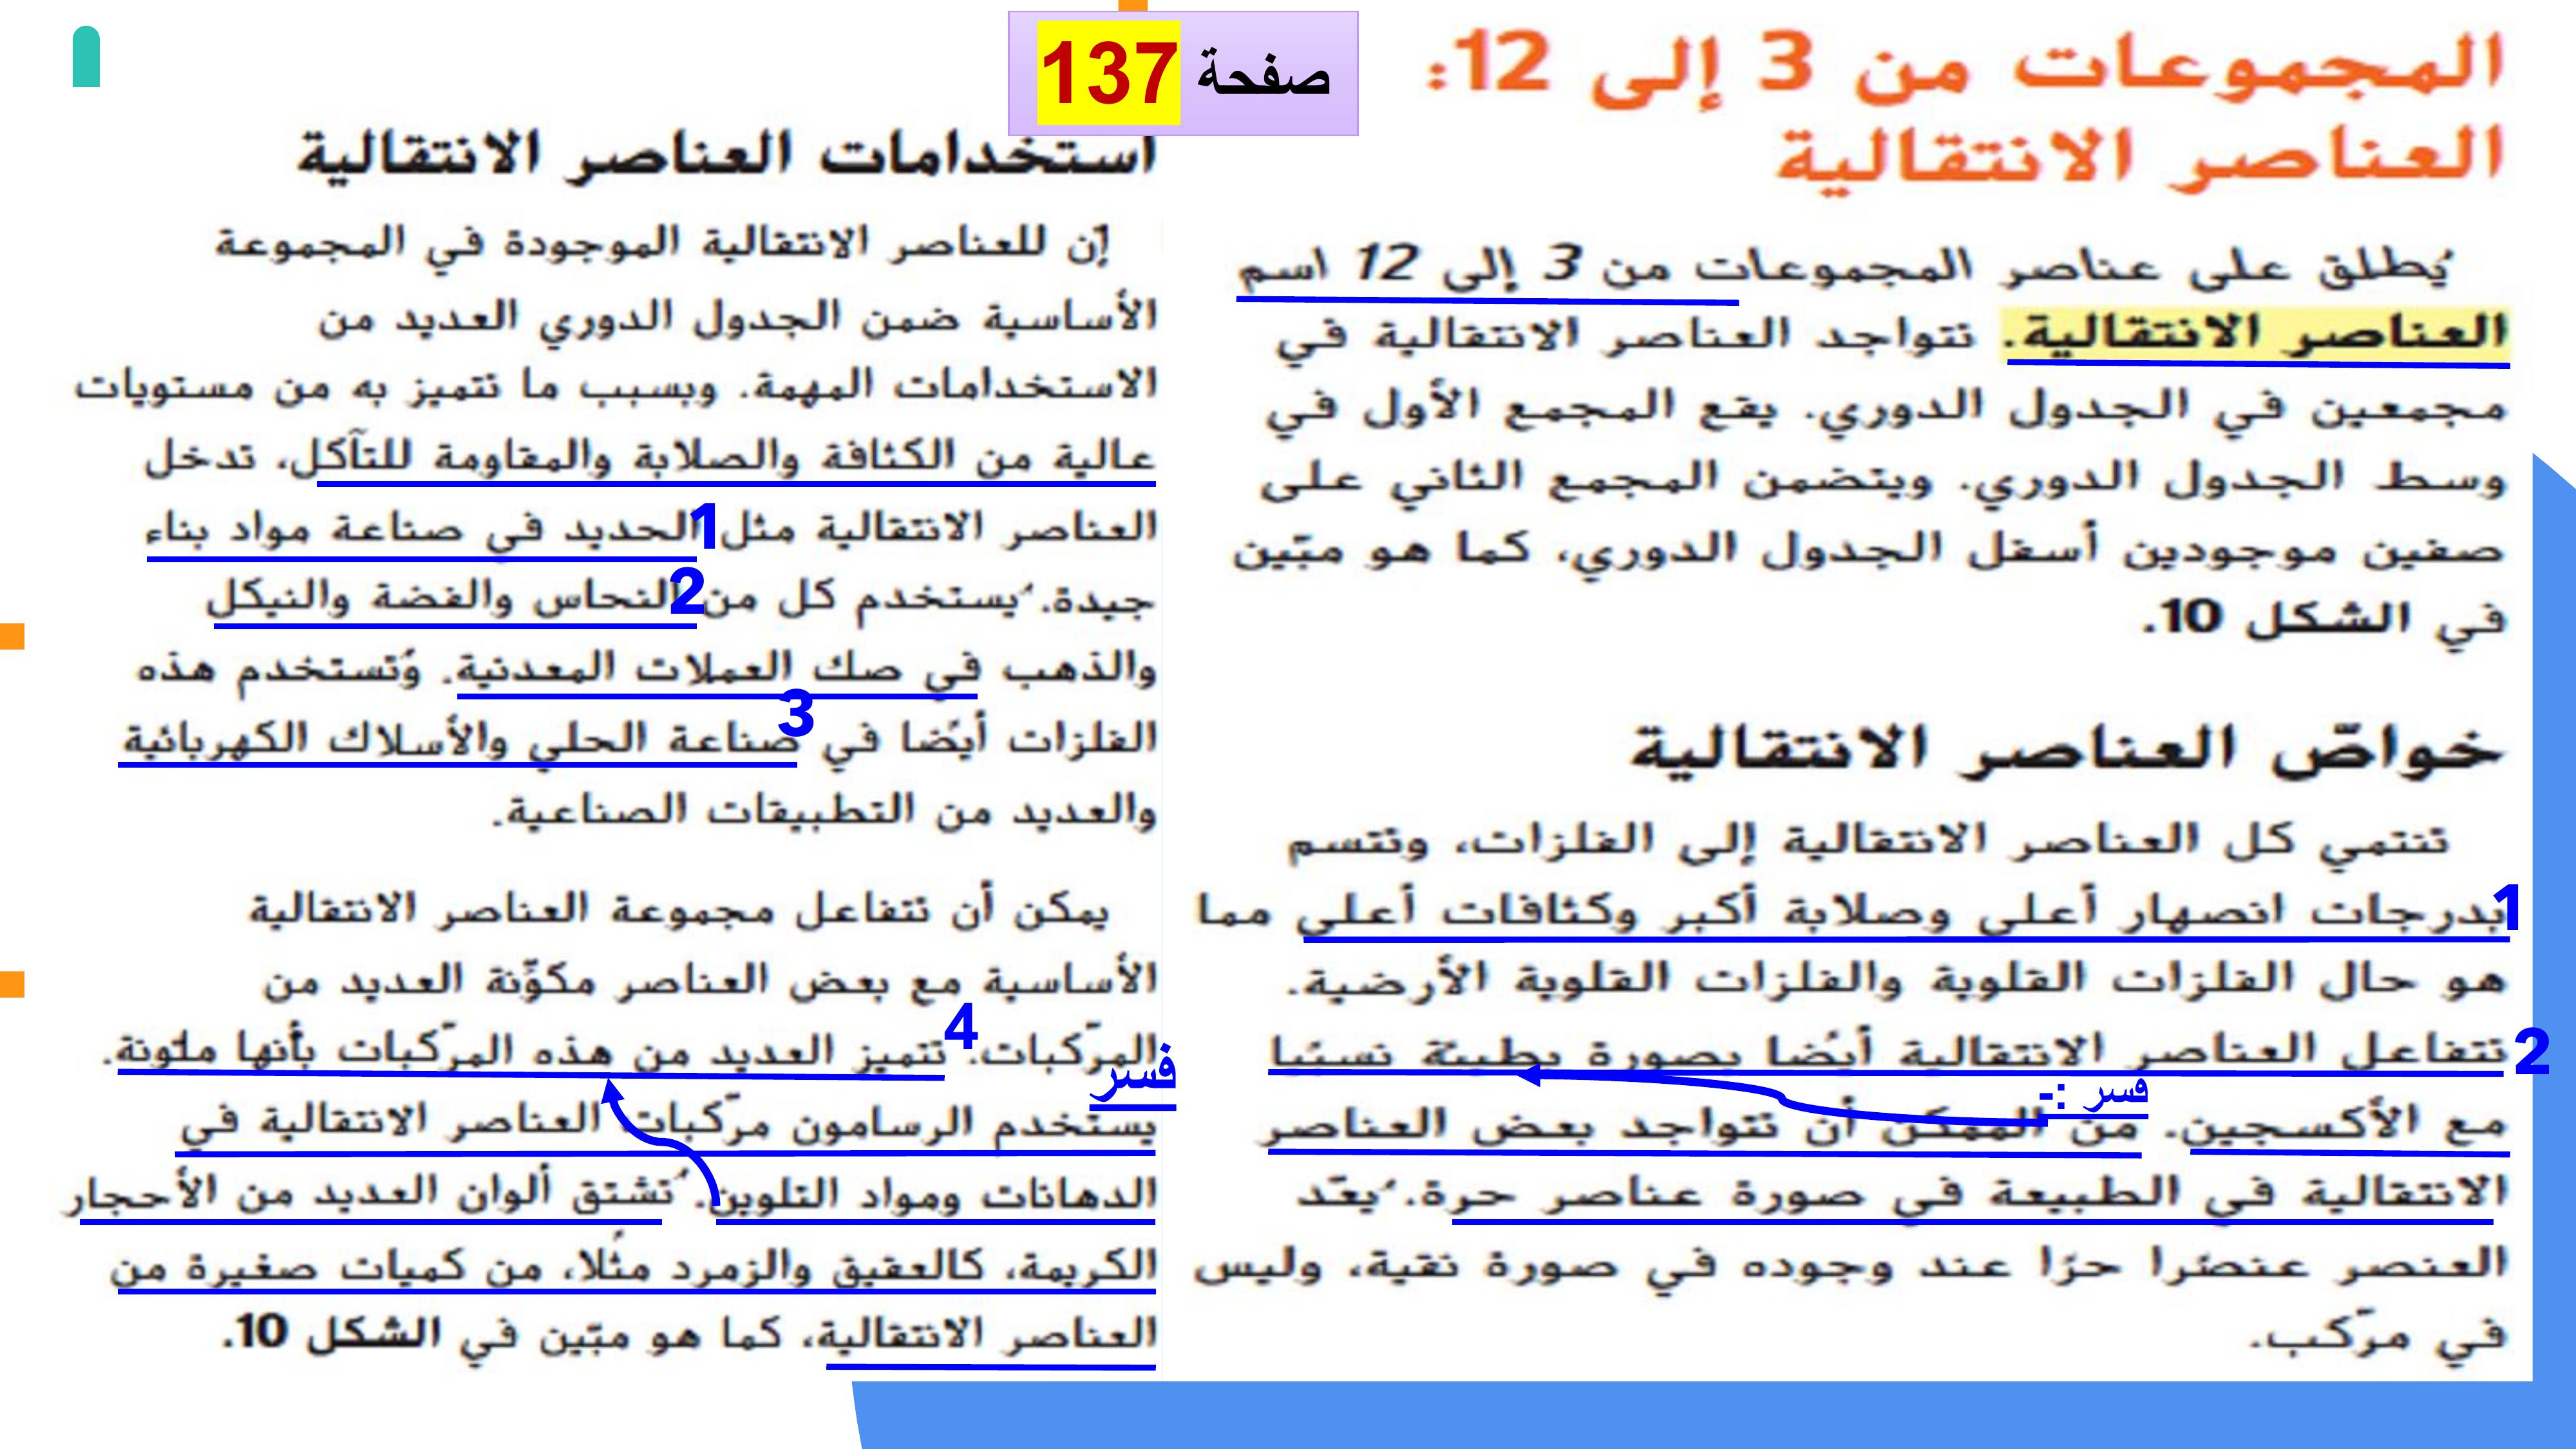 صفحة 137
المجموعات من 3 إلى 12:
العناصر الانتقالية
يُطلق على عناصر المجموعات من 3 إلى 12 اسم
العناصر الانتقالية. تتواجد العناصر الانتقالية في
مجمعين في الجدول الدوري. يقع المجمع الأول في
وسط الجدول الدوري. ويتضمن المجمع الثاني على
صفين موجودين أسفل الجدول الدوري، كما هو مبّين
في الشكل 10.
خواصّ العناصر الانتقالية
تنتمي كل العناصر الانتقالية إلى الفلزات، وتتسم
1 بدرجات انصهار أعلى وصلابة أكبر وكثافات أعلى مما
هو حال الفلزات القلوية والفلزات القلوية الأرضية.
2 تتفاعل العناصر الانتقالية أيضًا بصورة بطيئة نسبيًا
فسر :-
مع الأكسجين. من الممكن أن تتواجد بعض العناصر
الانتقالية في الطبيعة في صورة عناصر حرة. يُعّد
العنصر عنصرًا حرًا عند وجوده في صورة نقية، وليس
في مرّكب.
استخدامات العناصر الانتقالية
إن للعناصر الانتقالية الموجودة في المجموعة
الأساسية ضمن الجدول الدوري العديد من
الاستخدامات المهمة. وبسبب ما تتميز به من مستويات
عالية من الكثافة والصلابة والمقاومة للتآكل، تدخل
العناصر الانتقالية مثل 1 الحديد في صناعة مواد بناء
جيدة. يُستخدم كل من 2 النحاس والفضة والنيكل
والذهب في صك العملات المعدنية. وُتستخدم هذه
الفلزات أيضًا في 3 صناعة الحلي والأسلاك الكهربائية
والعديد من التطبيقات الصناعية.
يمكن أن تتفاعل مجموعة العناصر الانتقالية
الأساسية مع بعض العناصر مكوّنة العديد من
المرّكبات. 4 تتميز العديد من هذه المرّكبات بأنها ملونة.
فسر
يستخدم الرسامون مرّكبات العناصر الانتقالية في
الدهانات ومواد التلوين. ُتشتق ألوان العديد من الأحجار
الكريمة، كالعقيق والزمرد مثلًا، من كميات صغيرة من
العناصر الانتقالية، كما هو مبّين في الشكل 10.